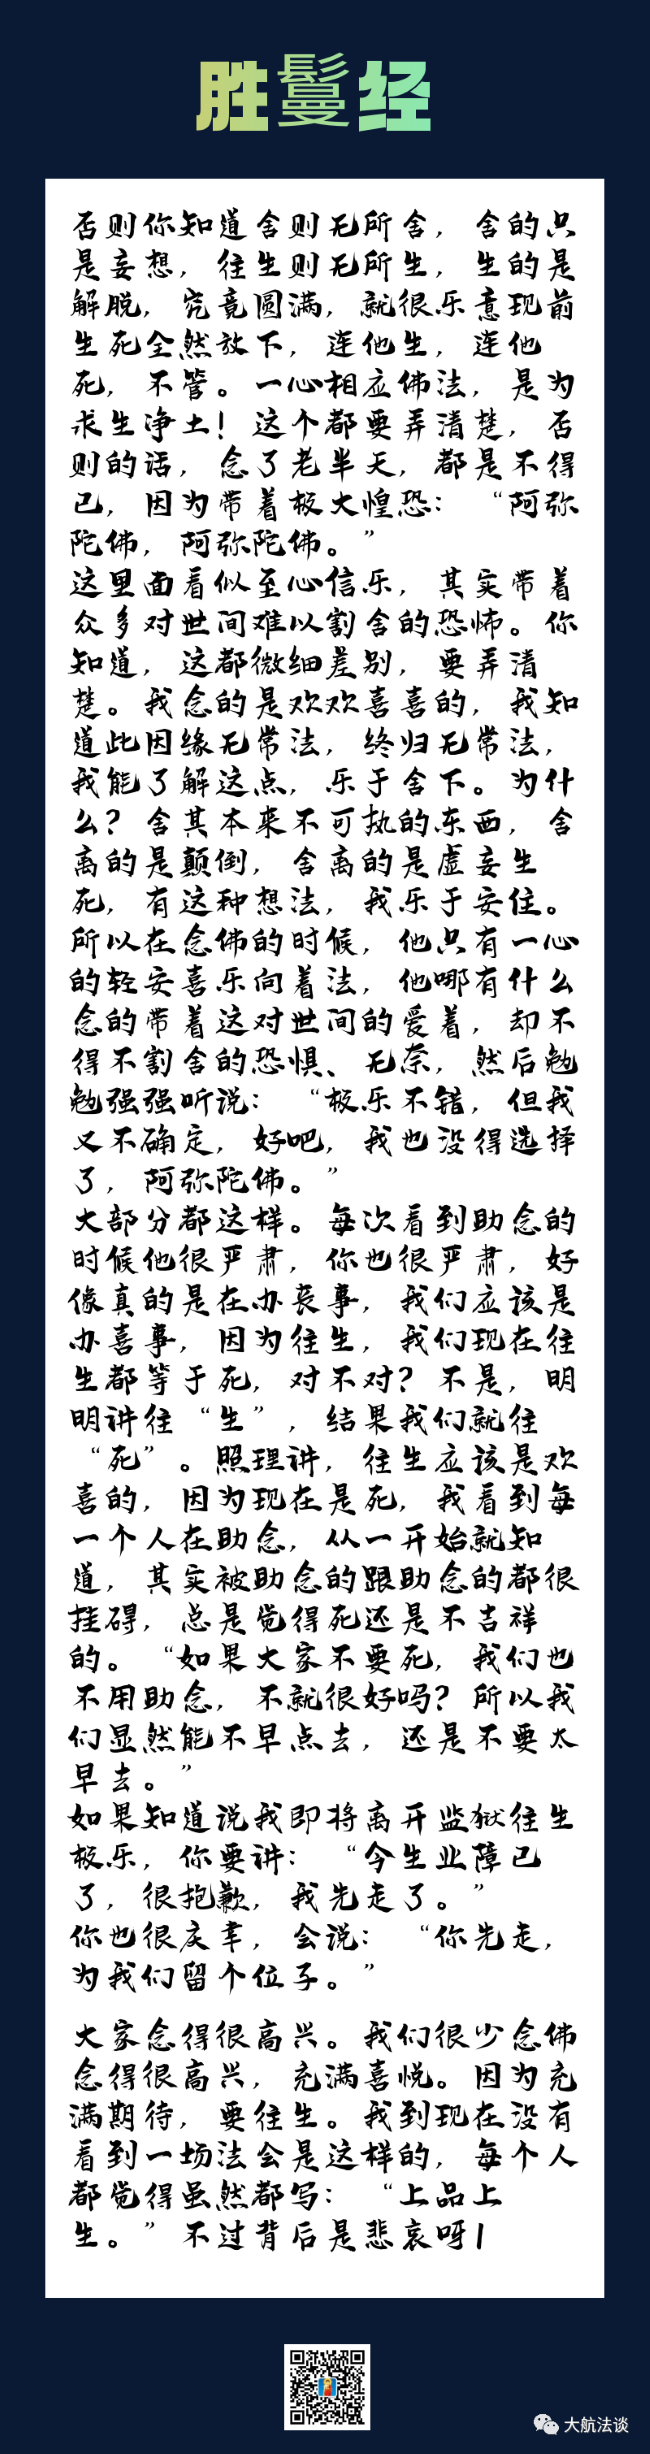 胜鬘经
否则你知道舍则无所舍，舍的只
是妄想，往生则无所生，生的是
解脱，究竟圆满，就很乐意现前
生死全然放下，连他生，连他
死，不管。一心相应佛法，是为
求生净土！这个都要弄清楚，否
则的话，念了老半天，都是不得
已，因为带着极大惶恐：“阿弥
陀佛，阿弥陀佛。”
这里面看似至心信乐，其实带着
众多对世间难以割舍的恐怖。你
知道，这都微细差别，要弄清
楚。我念的是欢欢喜喜的，我知
道此因缘无常法，终归无常法，
我能了解这点，乐于舍下。为什
么？舍其本来不可执的东西，舍
离的是颠倒，舍离的是虚妄生
死，有这种想法，我乐于安住。
所以在念佛的时候，他只有一心
的轻安喜乐向着法，他哪有什么
念的带着这对世间的爱着，却不
得不割舍的恐惧、无奈，然后勉
勉强强听说：“极乐不错，但我
又不确定，好吧，我也没得选择
了，阿弥陀佛。”
大部分都这样。每次看到助念的
时候他很严肃，你也很严肃，好
像真的是在办丧事，我们应该是
办喜事，因为往生，我们现在往
生都等于死，对不对？不是，明
明讲往“生”，结果我们就往
“死”。照理讲，往生应该是欢
喜的，因为现在是死，我看到每
一个人在助念，从一开始就知
道，其实被助念的跟助念的都很
挂碍，总是觉得死还是不吉祥
的。“如果大家不要死，我们也
不用助念，不就很好吗？所以我
们显然能不早点去，还是不要太
早去。”
如果知道说我即将离开监狱往生
极乐，你要讲：“今生业障已
了，很抱歉，我先走了。”
你也很庆幸，会说：“你先走，
为我们留个位子。”
大家念得很高兴。我们很少念佛
念得很高兴，充满喜悦。因为充
满期待，要往生。我到现在没有
看到一场法会是这样的，每个人
都觉得虽然都写：“上品上
生。”不过背后是悲哀呀！
大航法谈